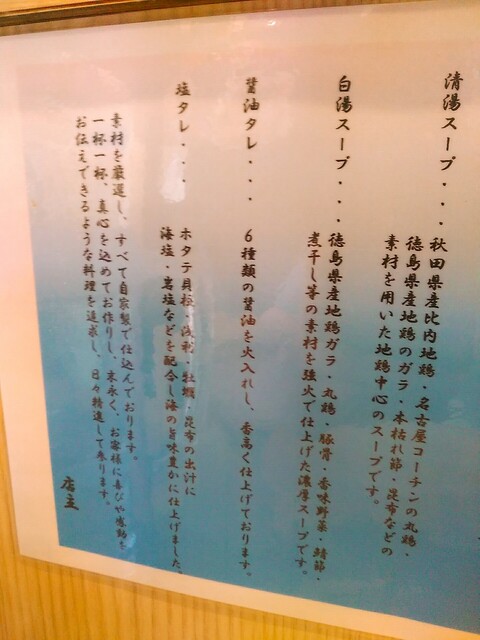 清湯スープ・・・秋田県産比内地鶏・名古屋コーチンの丸鶏・
徳島県産地鶏のガラ・本枯れ節・昆布などの
素材を用いた地鶏中心のスープです。
白湯スープ・・・徳島県産地鶏ガラ・丸鶏・豚骨・香味野菜・鯖節・
煮干し等の素材を強火で仕上げた濃厚スープです。
醤油タレ・・・・6種類の醤油を火入れし、香高く仕上げております。
塩タレ・・・・ホタテ貝柱・浅利・牡蠣・昆布の出汁に
海塩・岩塩などを配合し海の旨味豊かに仕上げました。
素材を厳選し、すべて自家製で仕込んでおります。
一杯一杯、真心を込めてお作りし、末永く、お客様に喜びや感動を
お伝えできるような料理を追求し、日々精進して参ります。
店主